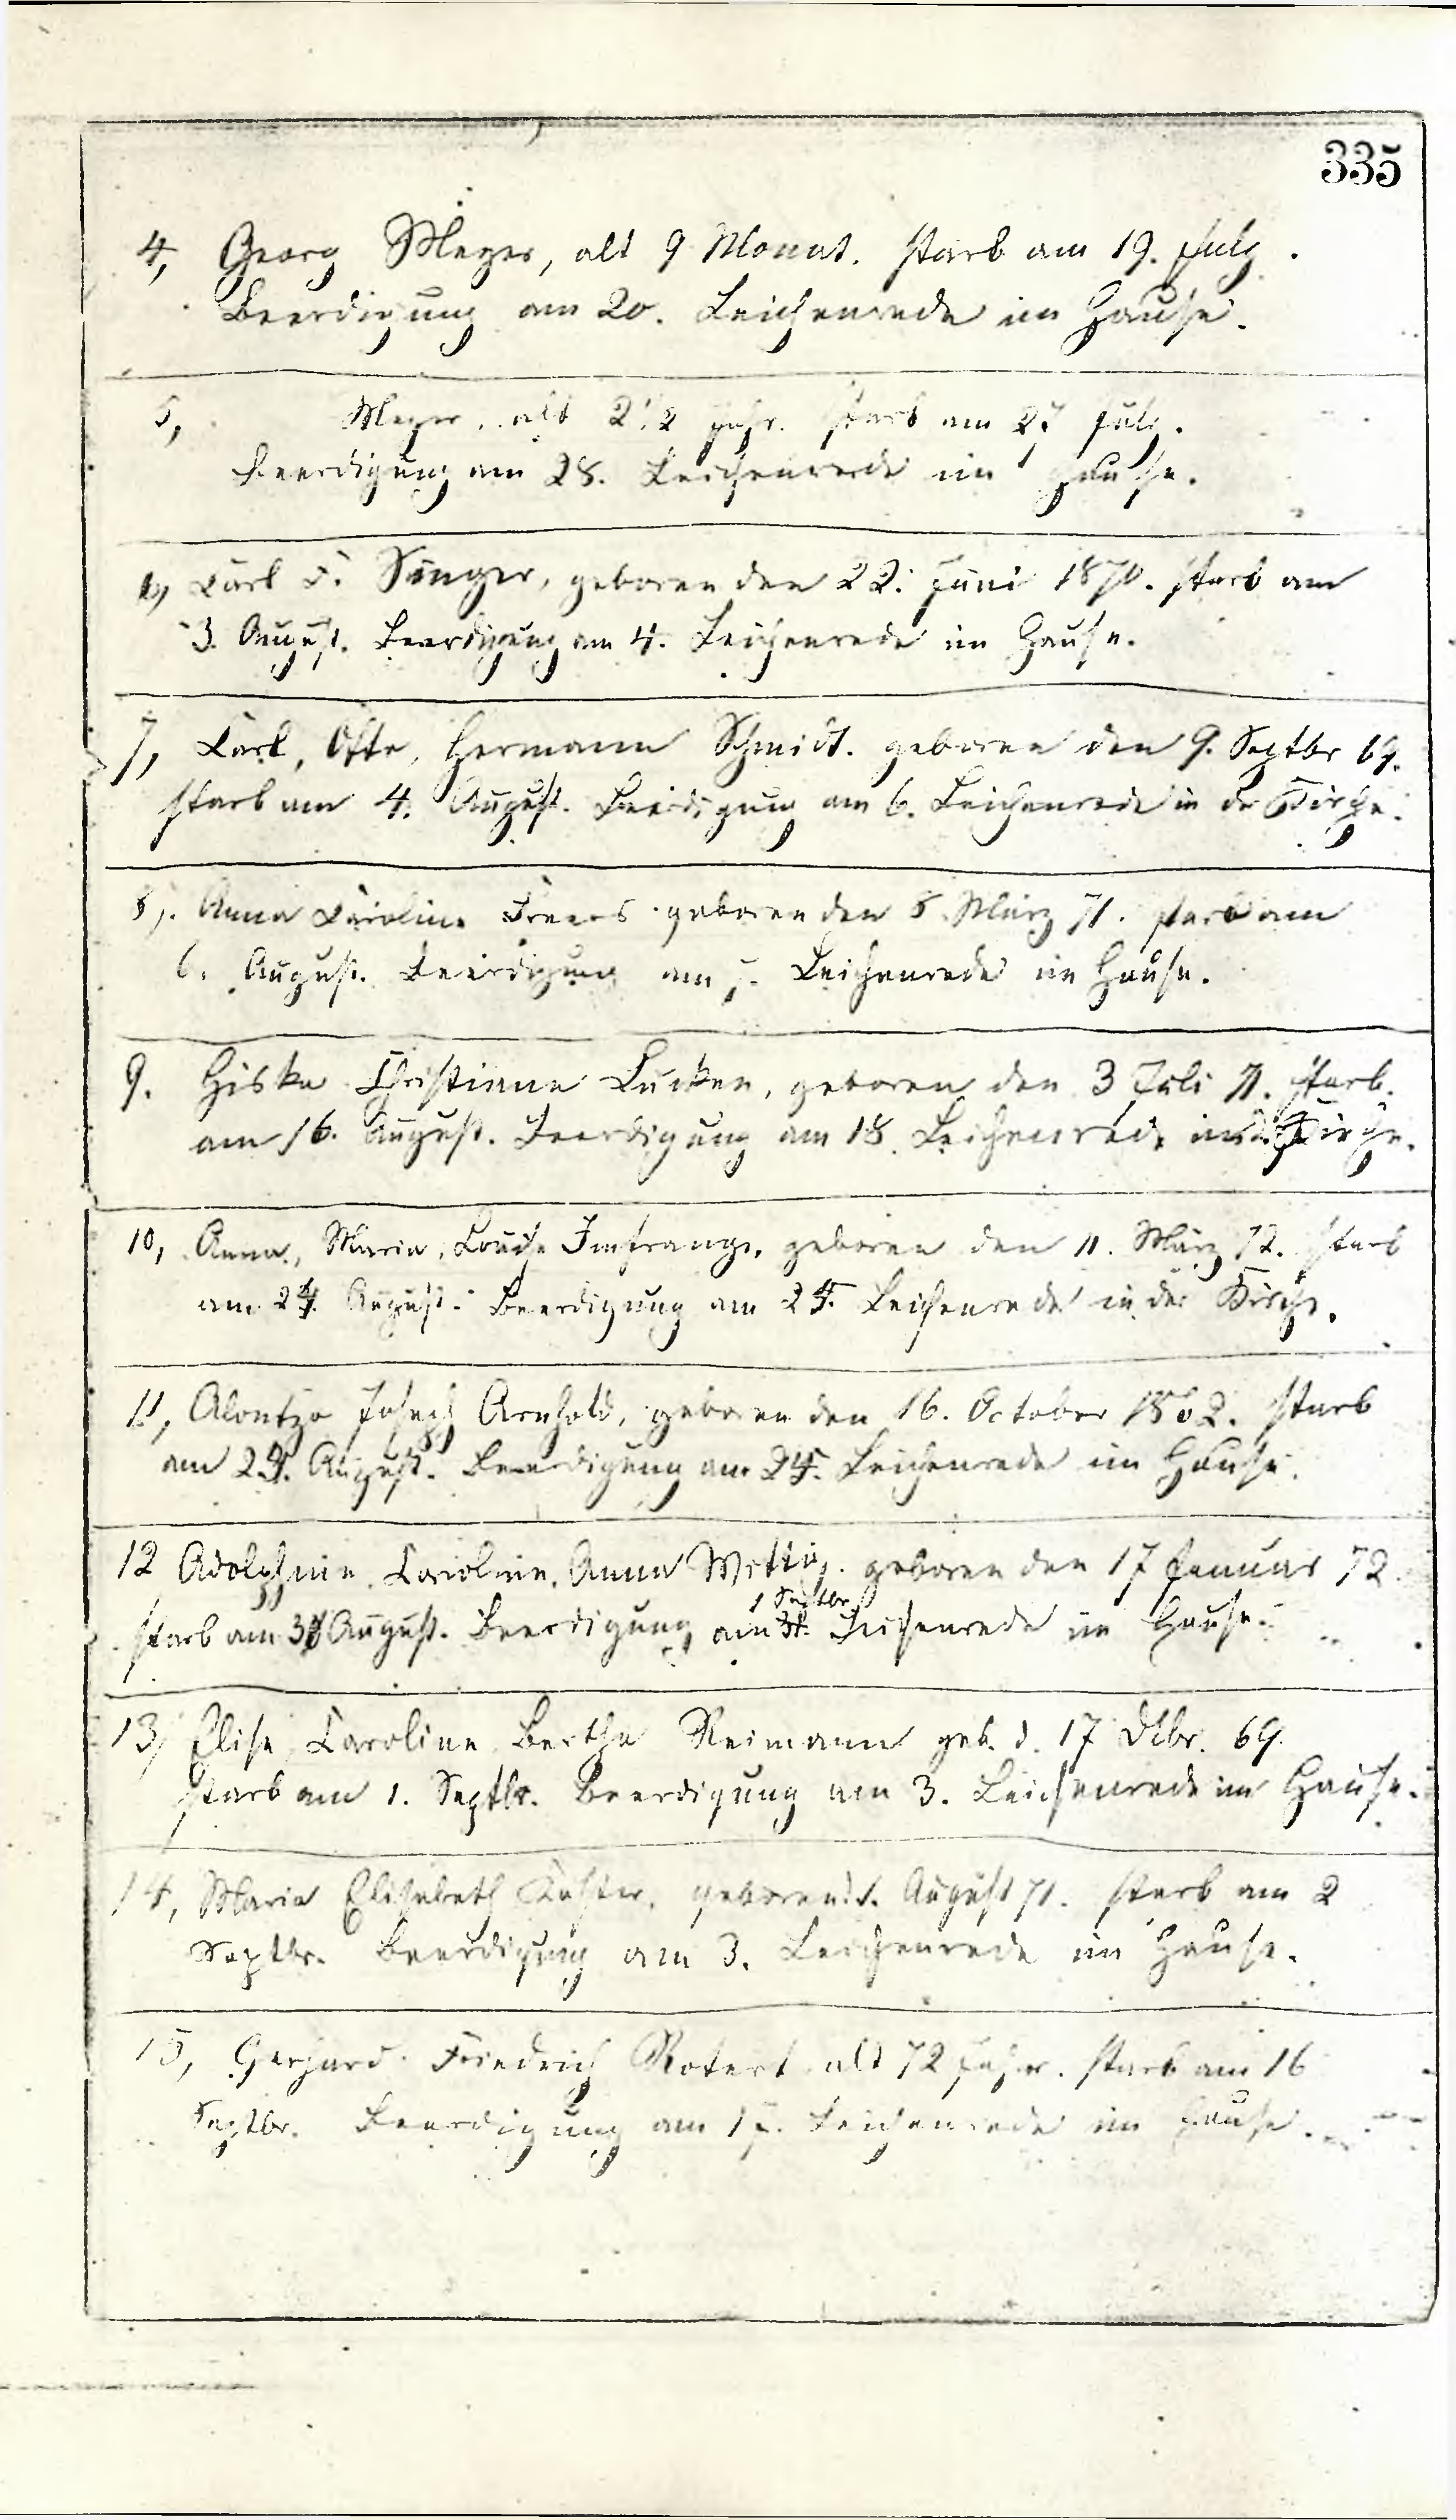 335
4, Georg Meyer, alt 9 Monat. starb am 19. July.
Beerdigung am 20. Leichenrede im Hause.
5, Meyer, alt 2 1/2 Jahr. starb am 27 July.
Beerdigung am 28. Leichenrede im Hause.
6, Carl F. Sänger, geboren den 22. Juni 1870. starb am
3. August. Beerdigung am 4. Leichenrede im Hause.
7, Carl, Otto, Hermann Schmidt. geboren den 9. Septbr 69.
starb am 4. August. Beerdigung am 6. Leichenrede in der Kirche.
8, Anna Caroline geboren den 8 März 71. starb am
6. August. Beerdigung am 7. Leichenrede im Hause.
9. Giske Christiane Lücken, geboren den 3 Juli 71. starb.
am 16. August. Beerdigung am 18. Leichenrede in der Kirche.
10, Anna, Maria, Louise geboren den 11. März 72. starb
am 24. August. Beerdigung am 25. Leichenrede in der Kirche.
11, Alontzo Joseph Arnhold, geboren den 16. October 1862. starb
am 24. August. Beerdigung am 25. Leichenrede im Hause.
12 Adolphine, Caroline, Anna Wettig. geboren den 17 Januar 72.
starb am 31 August. Beerdigung am 1 Septbr. Leichenrede im Hause.
13, Elise, Caroline, Bertha Reimann geb. d. 17 Dcbr. 69.
starb am 1. Septbr. Beerdigung am 3. Leichenrede im Hause.
14, Maria Elisabeth Koster, geboren August 71. starb am 2
Septbr. Beerdigung am 3. Leichenrede im Hause.
15, Gerhard Friedrich Rotert alt 72 Jahre. starb am 16
Septbr. Beerdigung am 17. Leichenrede im Hause.